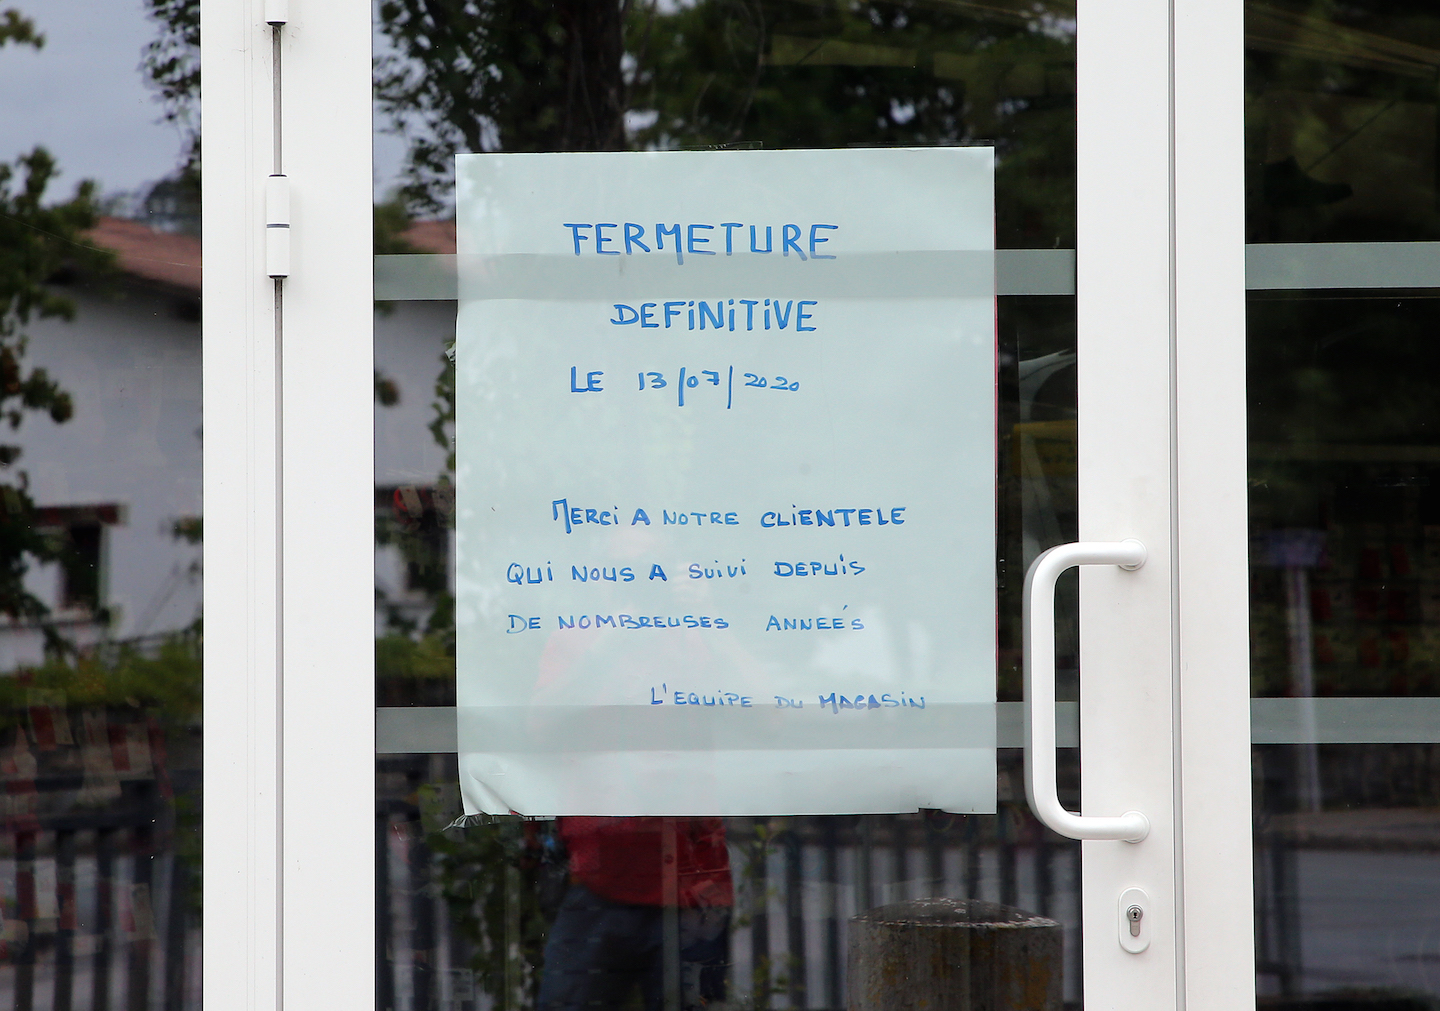 FERMETURE
DEFINITIVE
LE 13/07/2020
MERCI A NOTRE CLIENTELE
QUI NOUS A SUIVI DEPUIS
DE NOMBREUSES ANNEÉS
L'EQUIPE DU MAGASIN